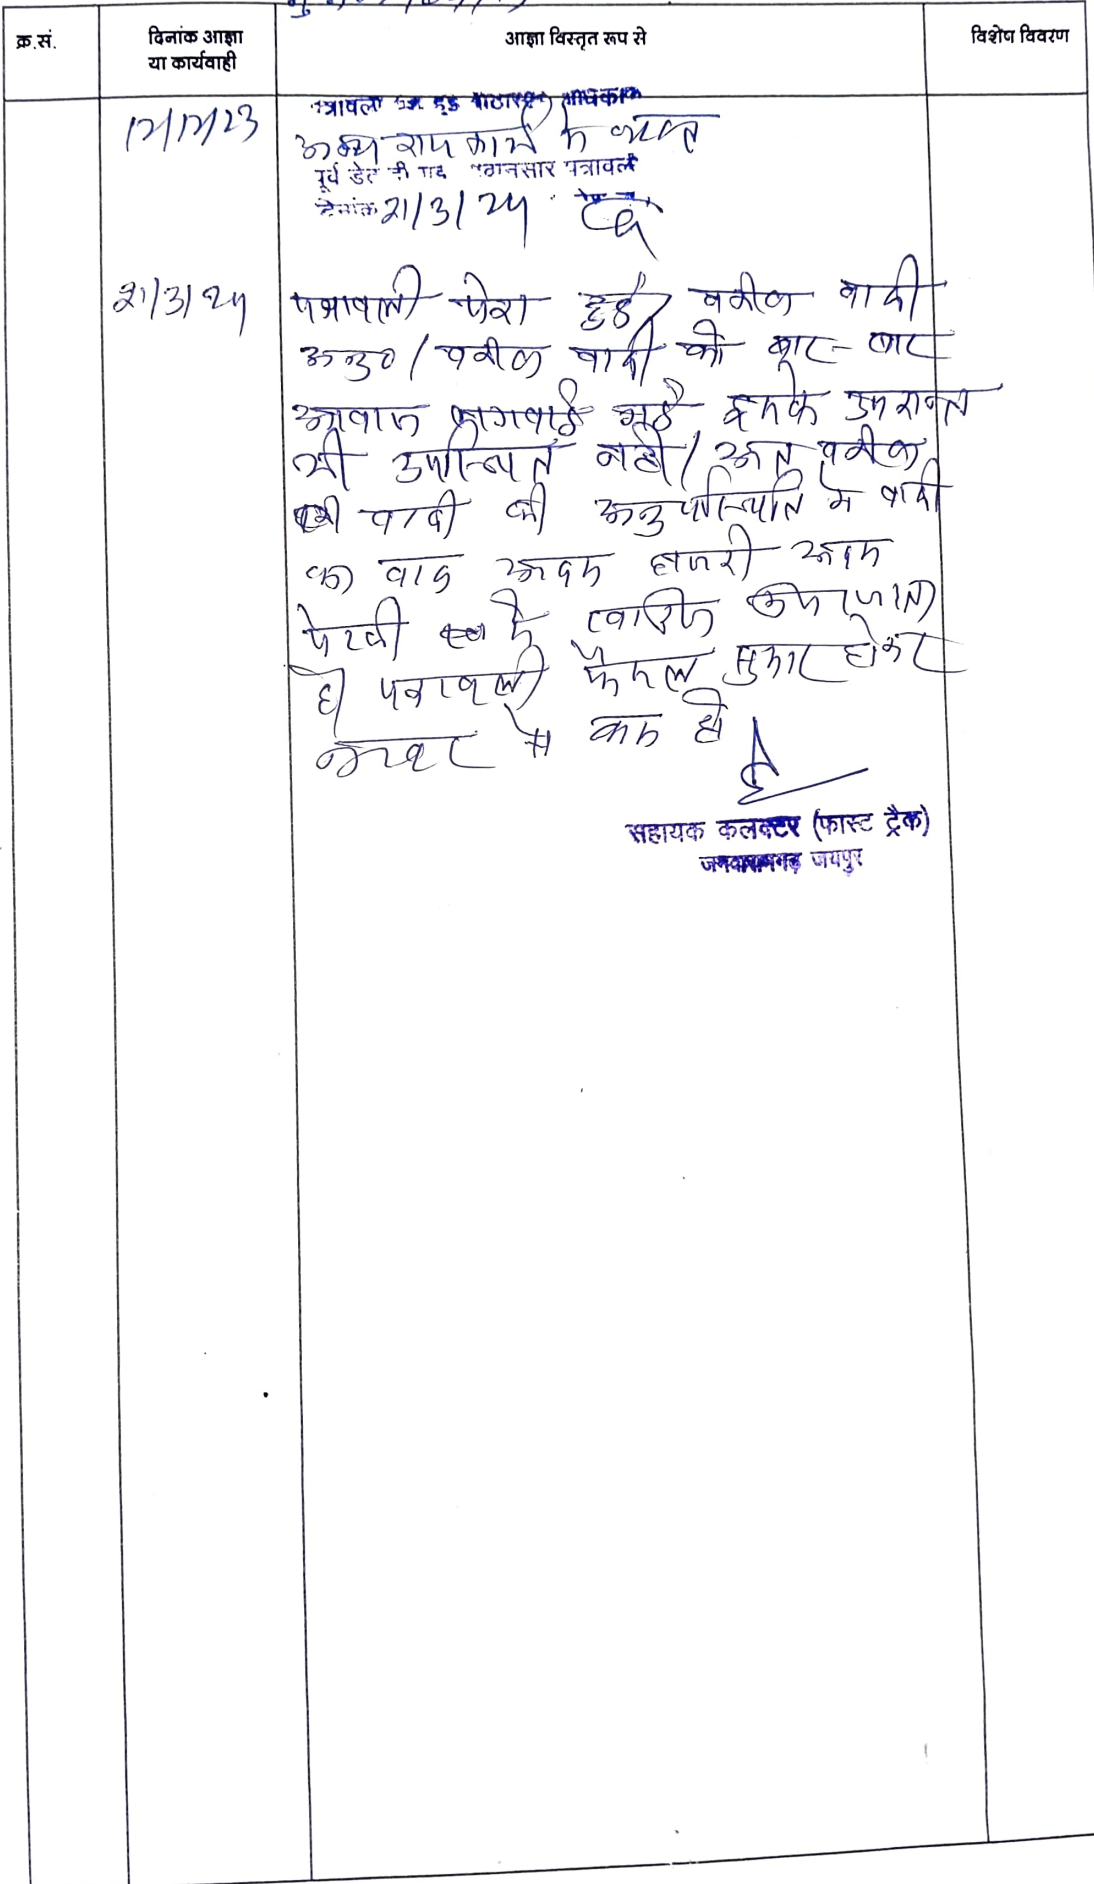 क्र.सं.
दिनांक आज्ञा
या कार्यवाही
आज्ञा विस्तृत रूप से
विशेष विवरण
12/12/23
अन्य राज कार्य में व्यस्त
पूर्व डेट दी गई पत्रावली
दिनांक 21/3/24
21/3/24
पत्रावली पेश हुई / वकील वादी
अनु० / वकील वादी को बार-बार
आवाज लगवाई गई इसके उपरान्त
भी उपस्थित नहीं / अतः वकील
वादी की अनुपस्थिति में वादी
का वाद अदम हाजरी अदम
पेरवी में खारिज किया जाता
है पत्रावली फैसल सुमार होकर
नम्बर से कम हो
सहायक कलक्टर (फास्ट ट्रैक)
जमवारामगढ़ जयपुर